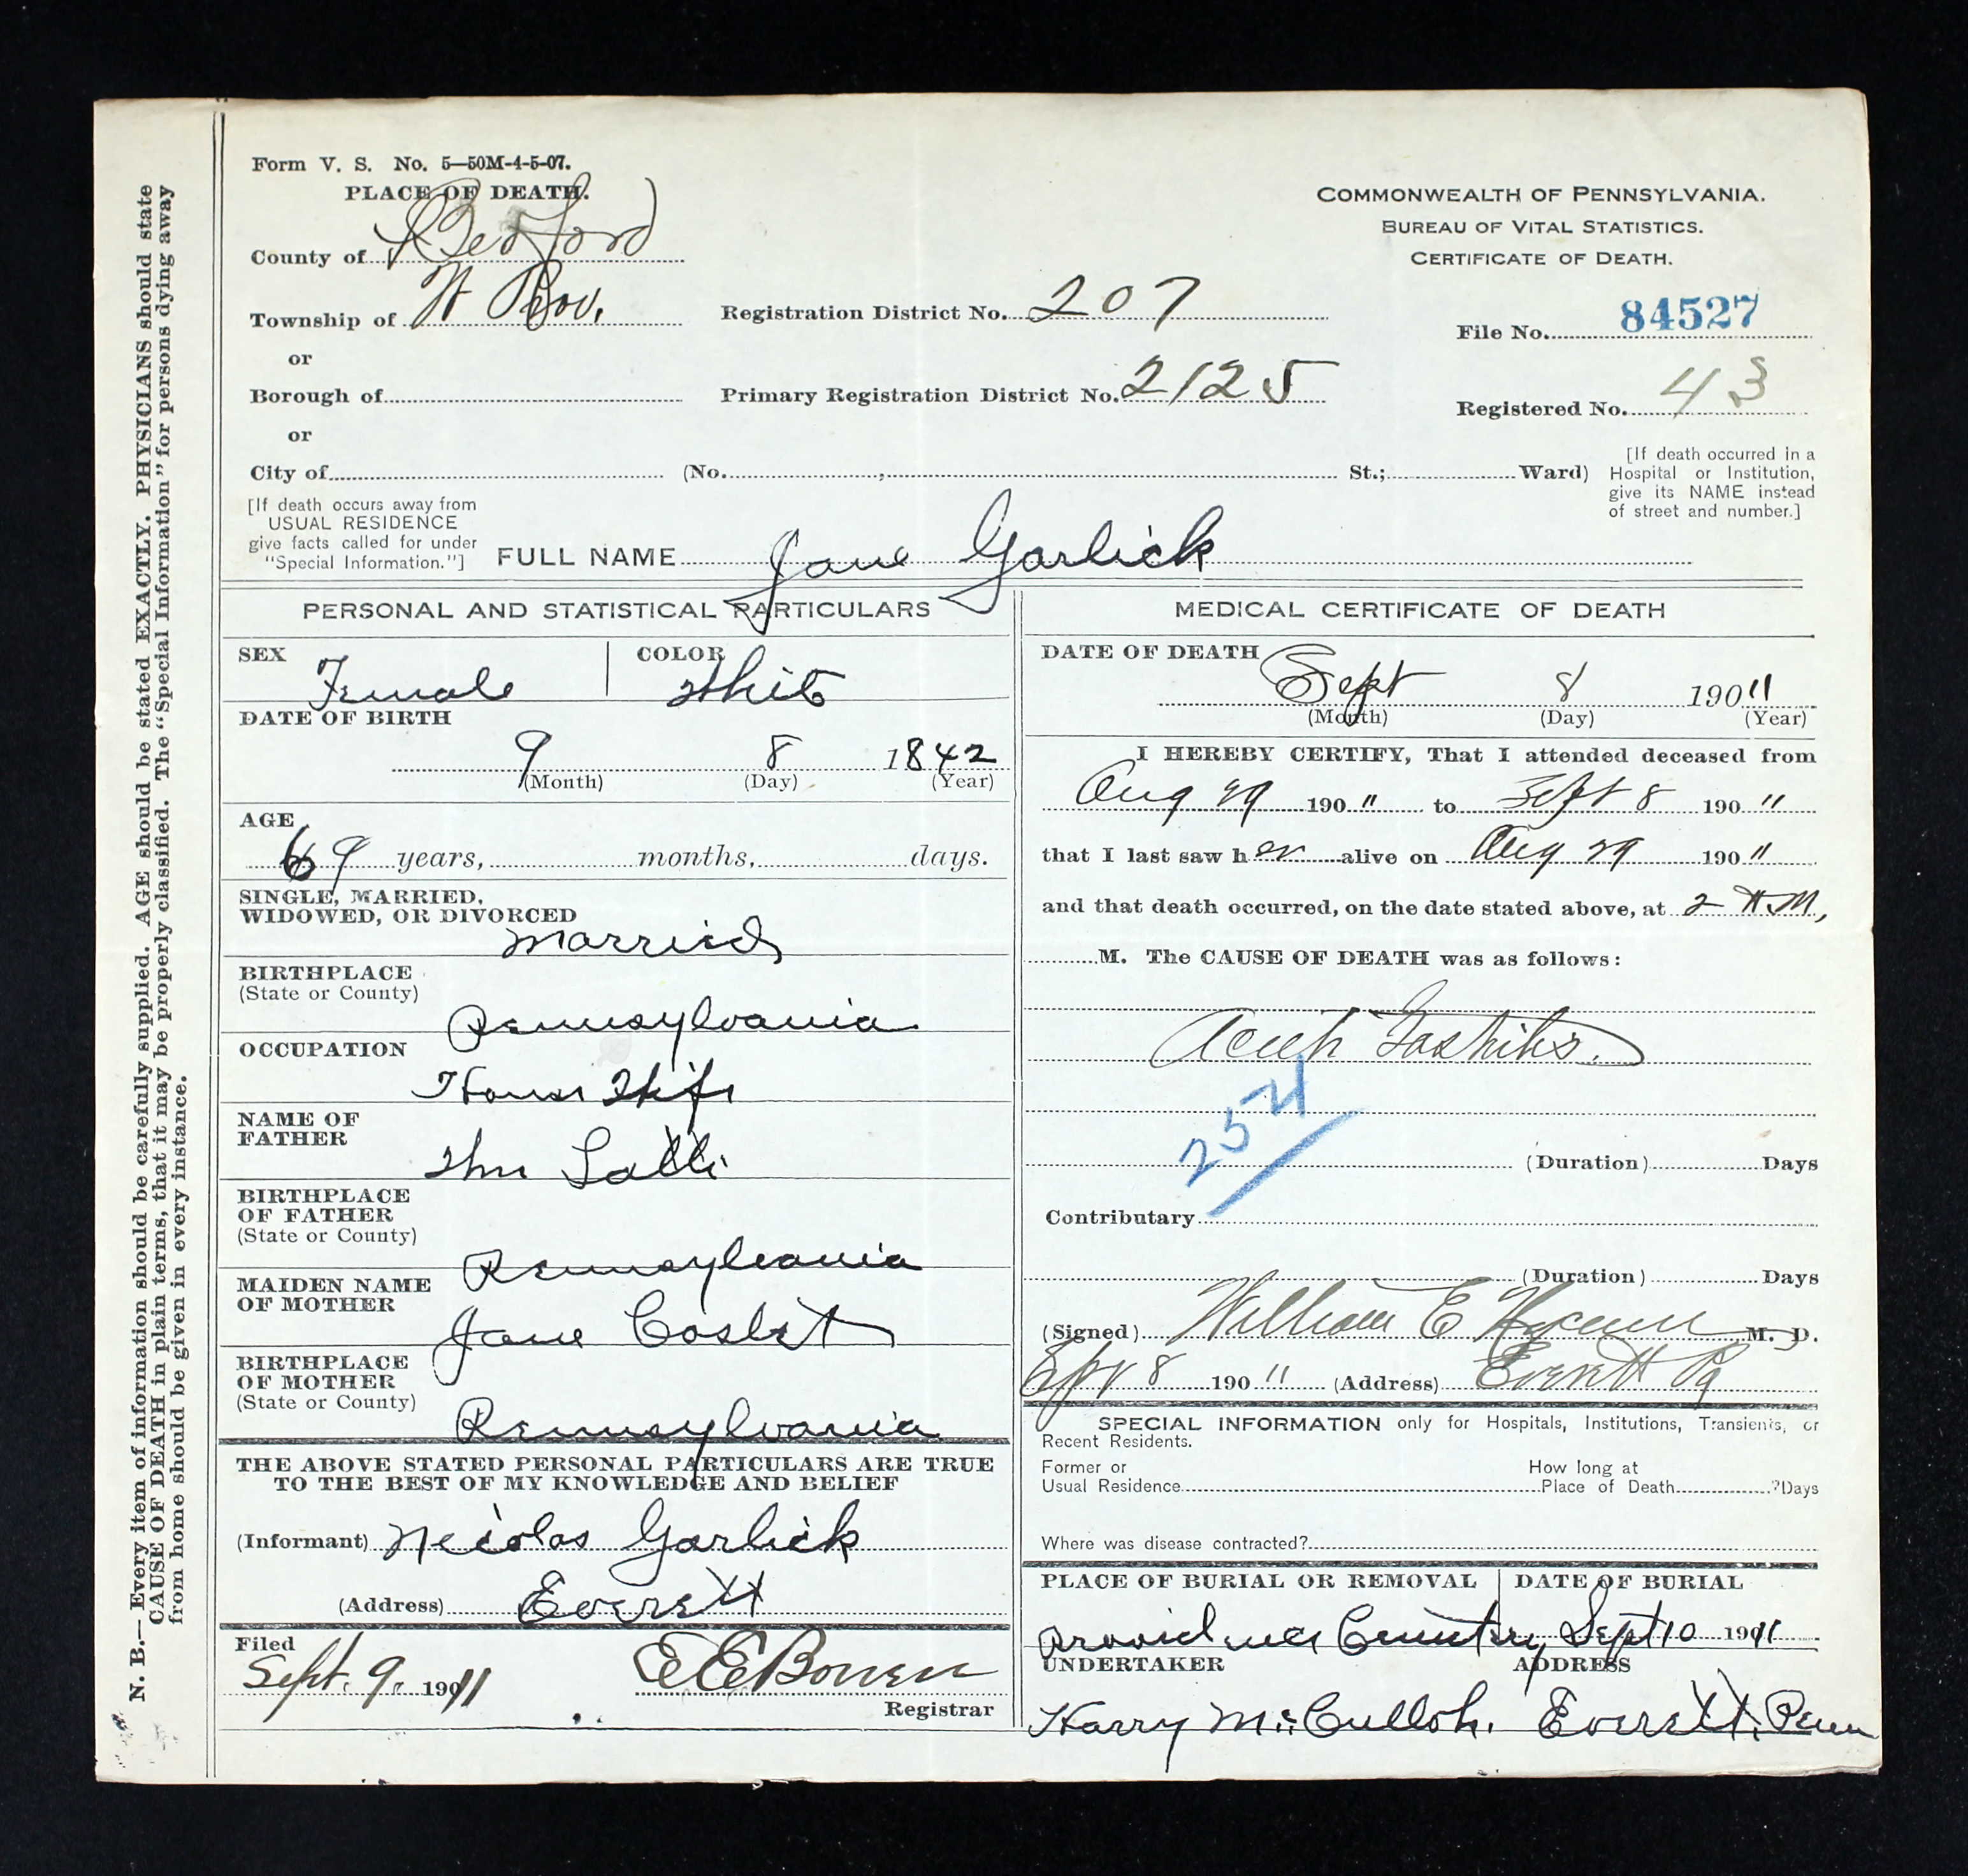 Form V. S. No. 5—50M-4-5-07.
PLACE OF DEATH.
County of Bedford
Township of W Prov.
or
Borough of
or
City of (No. , St.; Ward)
[If death occurs away from
USUAL RESIDENCE
give facts called for under
"Special Information."]
Registration District No. 207
Primary Registration District No. 2125
COMMONWEALTH OF PENNSYLVANIA.
BUREAU OF VITAL STATISTICS.
CERTIFICATE OF DEATH.
File No. 84527
Registered No. 43
[If death occurred in a
Hospital or Institution,
give its NAME instead
of street and number.]
FULL NAME Jane Garlick
PERSONAL AND STATISTICAL PARTICULARS
SEX Female
COLOR White
DATE OF BIRTH
9 8 1842
(Month) (Day) (Year)
AGE
69 years, months, days.
SINGLE, MARRIED,
WIDOWED, OR DIVORCED
Married
BIRTHPLACE
(State or County)
Pennsylvania
OCCUPATION
House Wife
NAME OF
FATHER
Wm
BIRTHPLACE
OF FATHER
(State or County)
Pennsylvania
MAIDEN NAME
OF MOTHER
Jane
BIRTHPLACE
OF MOTHER
(State or County)
Pennsylvania
THE ABOVE STATED PERSONAL PARTICULARS ARE TRUE
TO THE BEST OF MY KNOWLEDGE AND BELIEF
(Informant) Necolas Garlick
(Address) Everett
Filed
Sept. 9. 1911 E E Bowen
Registrar
MEDICAL CERTIFICATE OF DEATH
DATE OF DEATH
Sept 8 190 11
(Month) (Day) (Year)
I HEREBY CERTIFY, That I attended deceased from
Aug 29 190 11 to Sept 8 190 11
that I last saw her alive on Aug 29 190 11
and that death occurred, on the date stated above, at 2 A M,
M. The CAUSE OF DEATH was as follows:
Acute Gastritis.
(Duration) Days
Contributary
(Duration) Days
(Signed) William E M. D.
8 190 11 (Address) Everett Pa
SPECIAL INFORMATION only for Hospitals, Institutions, Transients, or
Recent Residents.
Former or
Usual Residence
How long at
Place of Death ?Days
Where was disease contracted?
PLACE OF BURIAL OR REMOVAL
DATE OF BURIAL
Providence Cemetery Sept 10 1911
UNDERTAKER ADDRESS
Harry McCulloh. Everett, Penn
N. B.—Every item of information should be carefully supplied. AGE should be stated EXACTLY. PHYSICIANS should state
CAUSE OF DEATH in plain terms, that it may be properly classified. The "Special Information" for persons dying away
from home should be given in every instance.